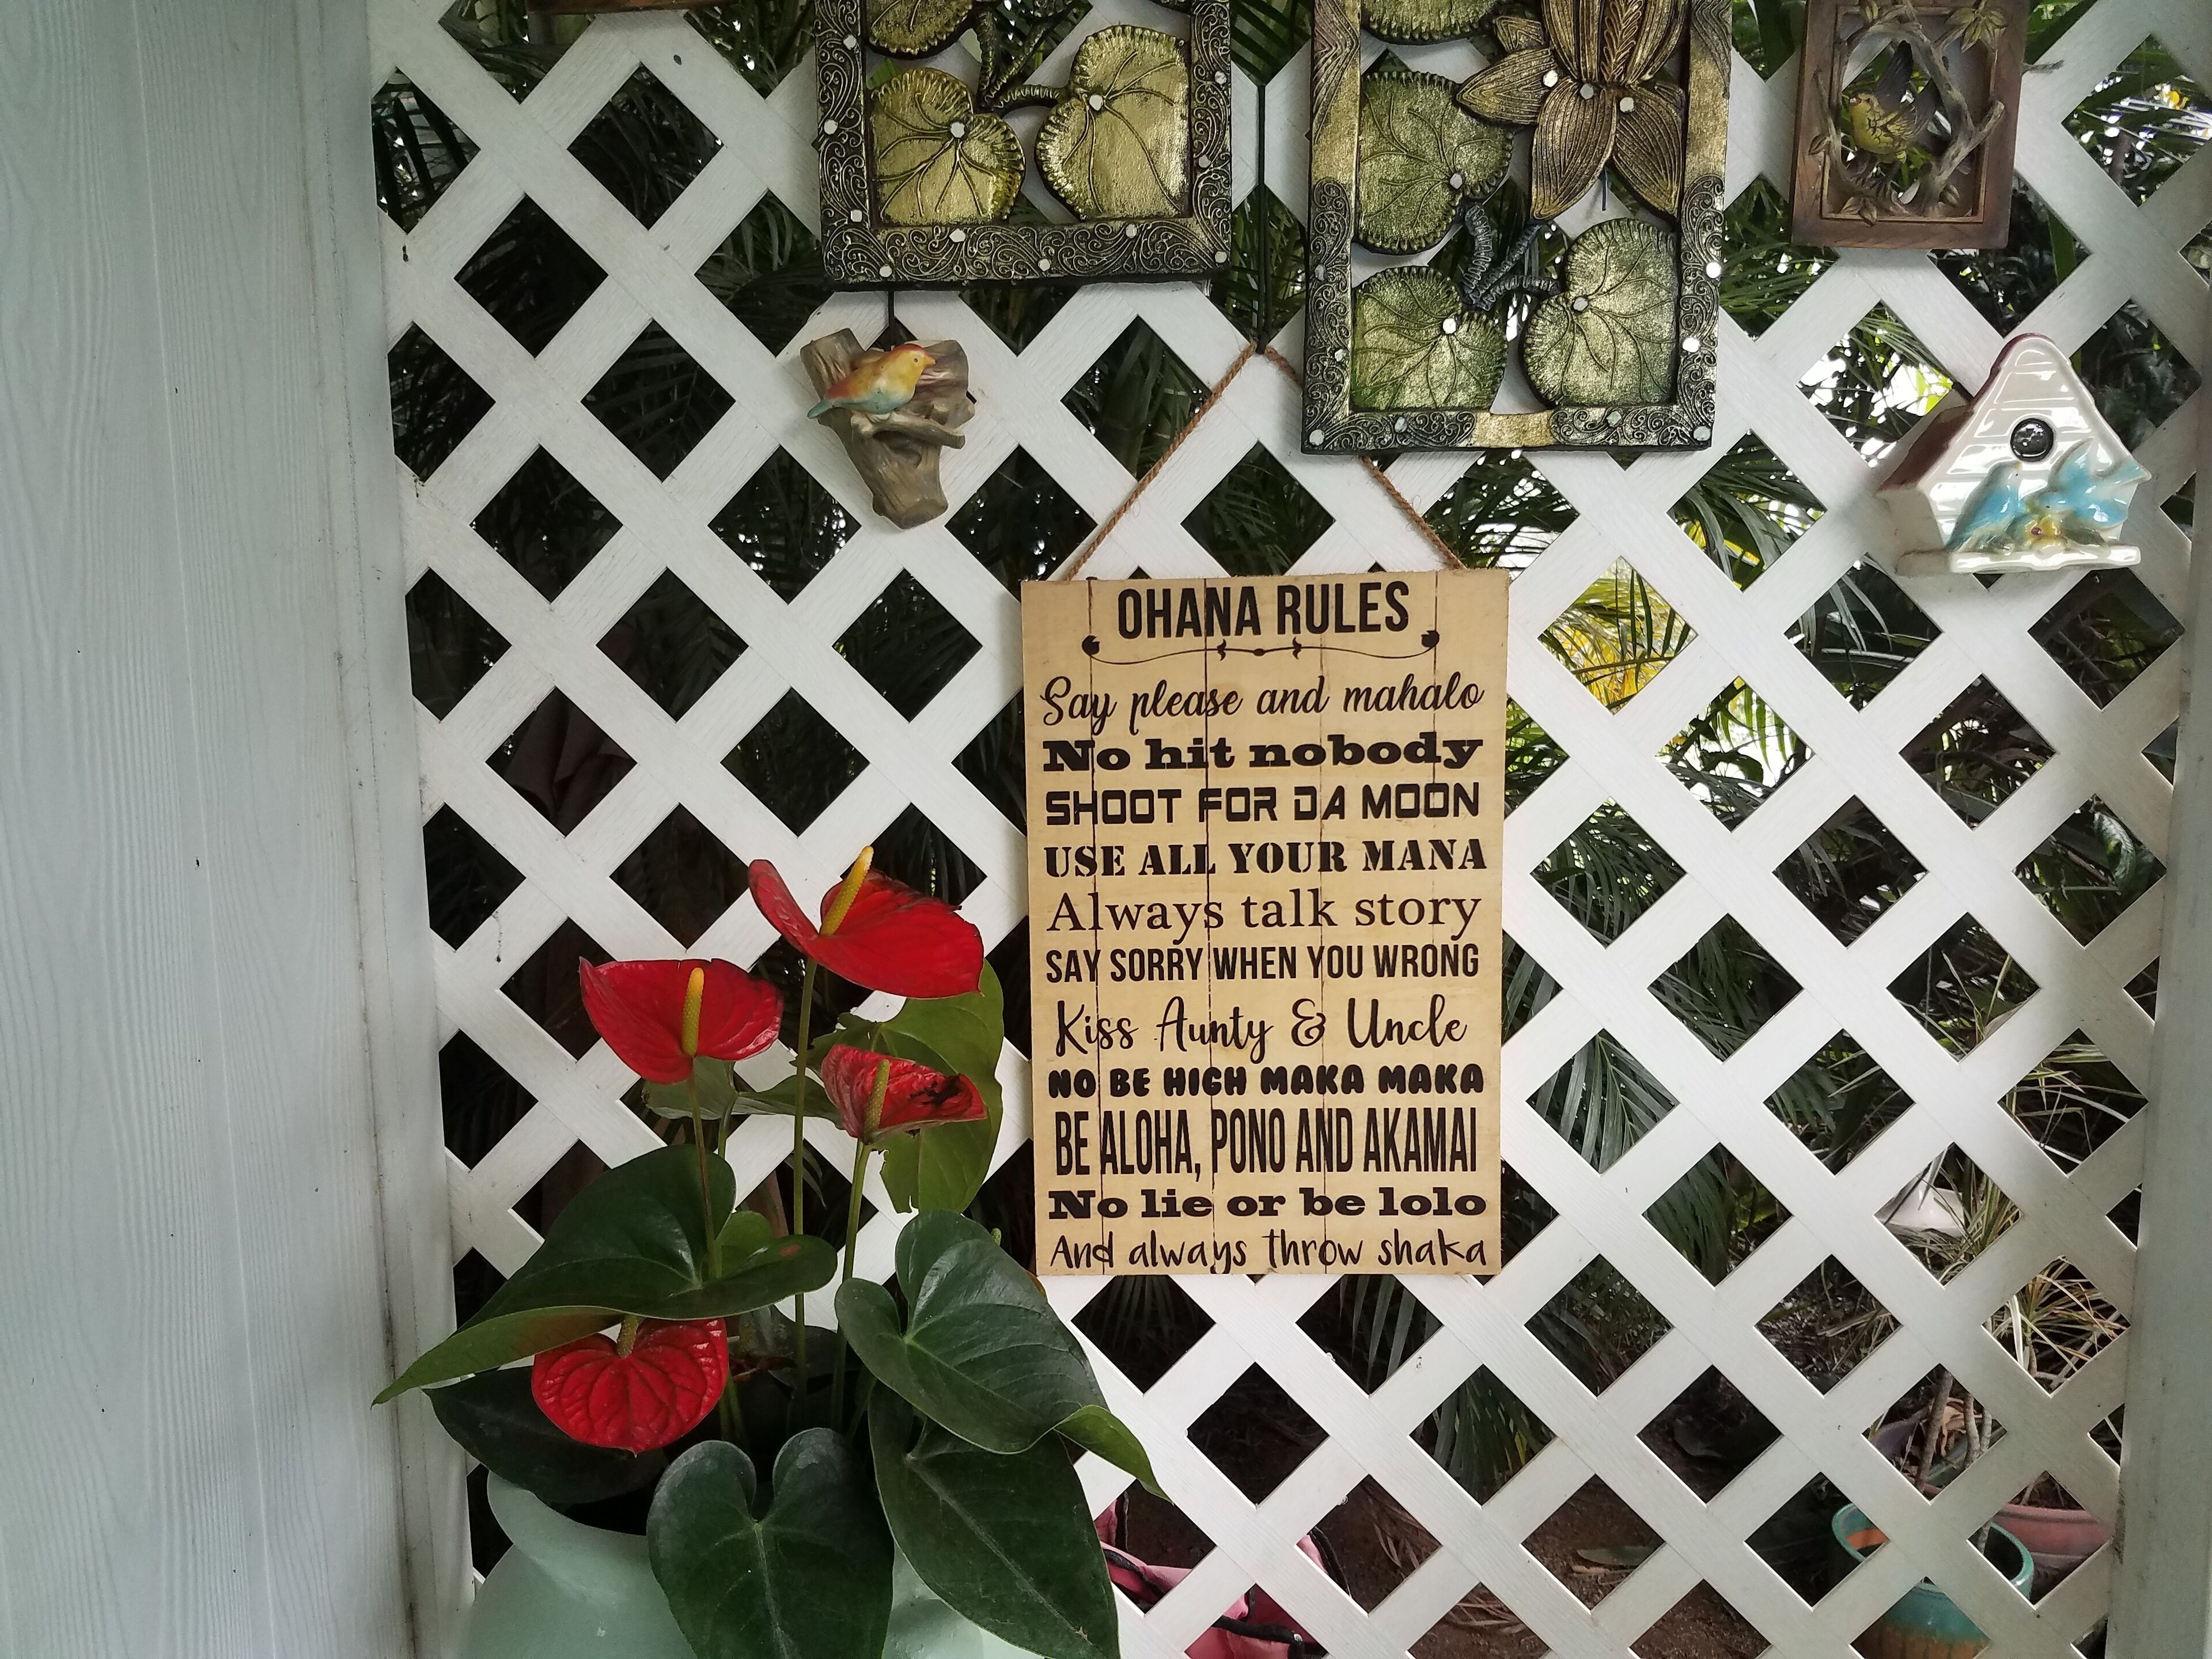 OHANA RULES
Say please and mahalo
No hit nobody
SHOOT FOR DA MOON
USE ALL YOUR MANA
Always talk story
SAY SORRY WHEN YOU WRONG
Kiss Aunty & Uncle
NO BE HIGH MAKA MAKA
BE ALOHA, PONO AND AKAMAI
No lie or be lolo
And always throw shaka